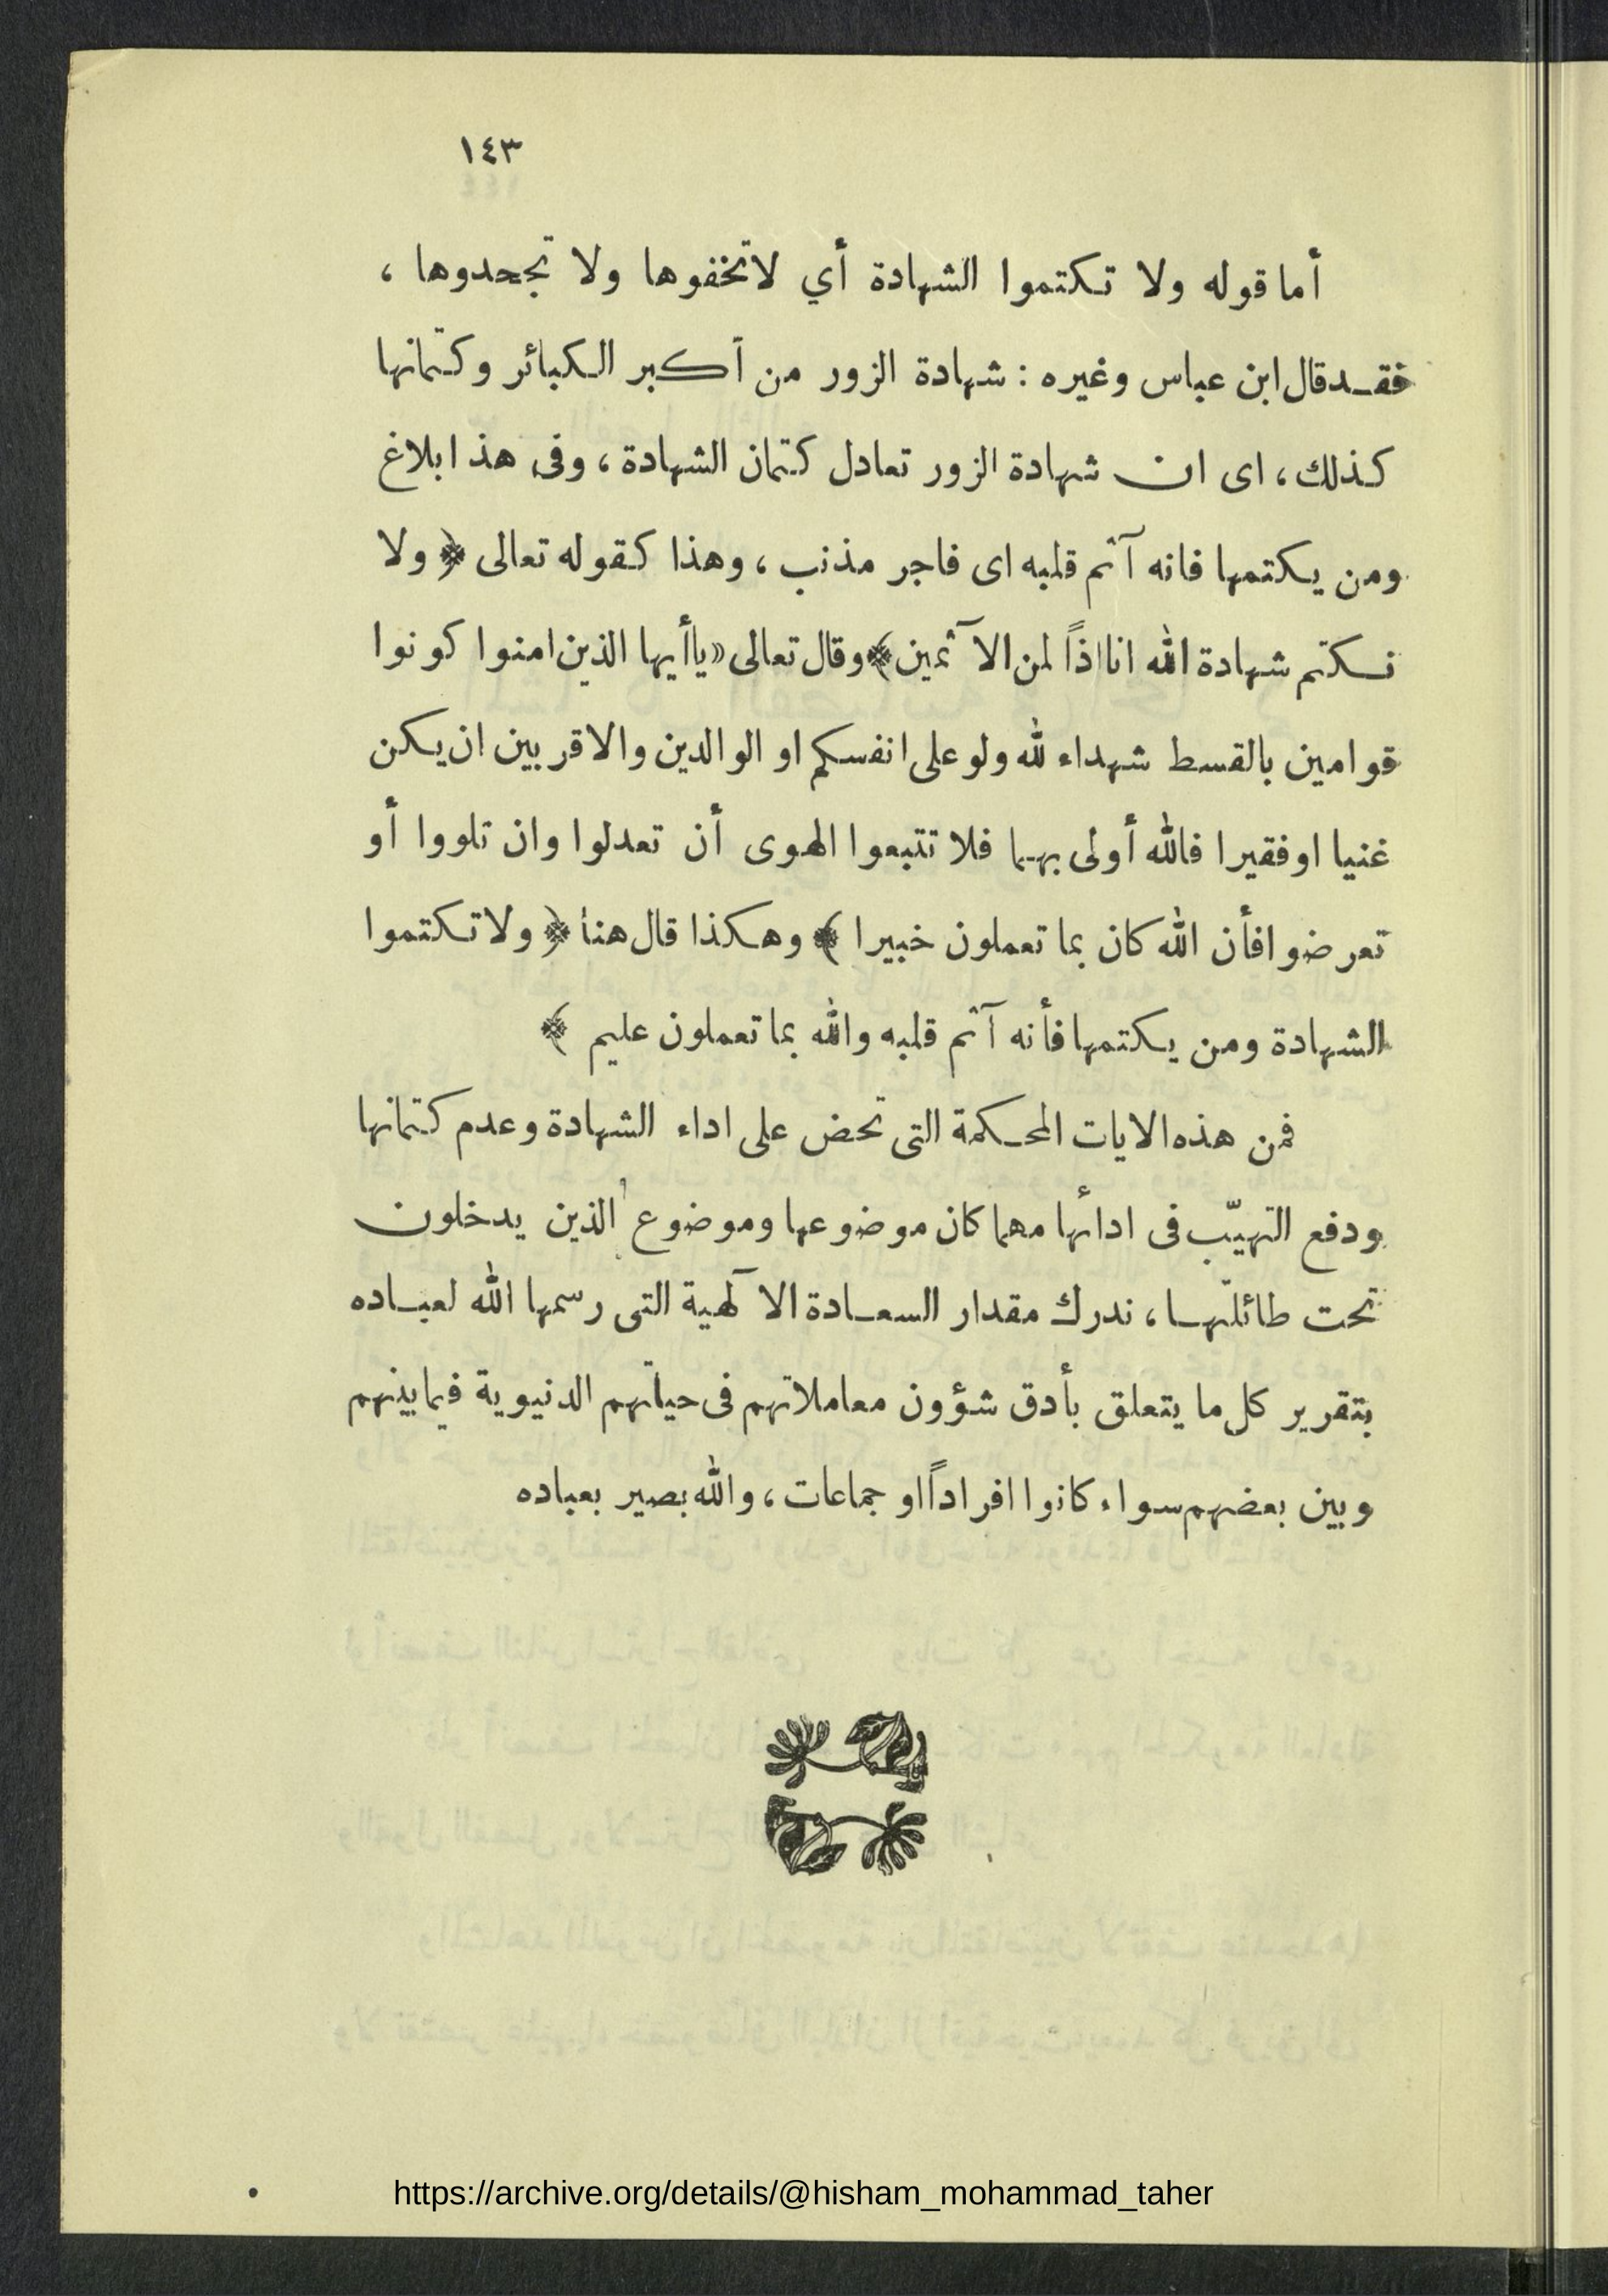 ١٤٣
أما قوله ولا تكتموا الشهادة أي لا تخفوها ولا تجحدوها ،
فقد قال ابن عباس وغيره : شهادة الزور من أكبر الكبائر وكتمانها
كذلك ، اى ان شهادة الزور تعادل كتمان الشهادة ، وفى هذا بلاغ
ومن يكتمها فانه آثم قلبه اى فاجر مذنب ، وهذا كقوله تعالى ﴿ ولا
نكتم شهادة الله انا اذاً لمن الآثمين ﴾ وقال تعالى « ياأيها الذين امنوا كونوا
قوامين بالقسط شهداء لله ولو على انفسكم او الوالدين والاقربين ان يكن
غنيا او فقيرا فالله أولى بهما فلا تتبعوا الهوى أن تعدلوا وان تلووا أو
تعرضوا فأن الله كان بما تعملون خبيرا ﴾ وهكذا قال هنا ﴿ ولا تكتموا
الشهادة ومن يكتمها فأنه آثم قلبه والله بما تعملون عليم ﴾
فمن هذه الايات المحكمة التى تحض على اداء الشهادة وعدم كتمانها
ودفع التهيّب فى ادائها مهما كان موضوعها وموضوع الذين يدخلون
تحت طائلتها ، ندرك مقدار السعادة الآلهية التى رسمها الله لعباده
بتقرير كل ما يتعلق بأدق شؤون معاملاتهم فى حياتهم الدنيوية فيما بينهم
وبين بعضهم سواء كانوا افراداً او جماعات ، والله بصير بعباده
https://archive.org/details/@hisham_mohammad_taher